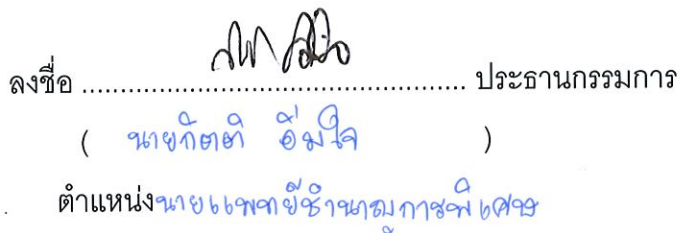 ลงชื่อ ................................................ ประธานกรรมการ
( นายกิตติ อิ่มใจ )
ตำแหน่งนายแพทย์ชำนาญการพิเศษ